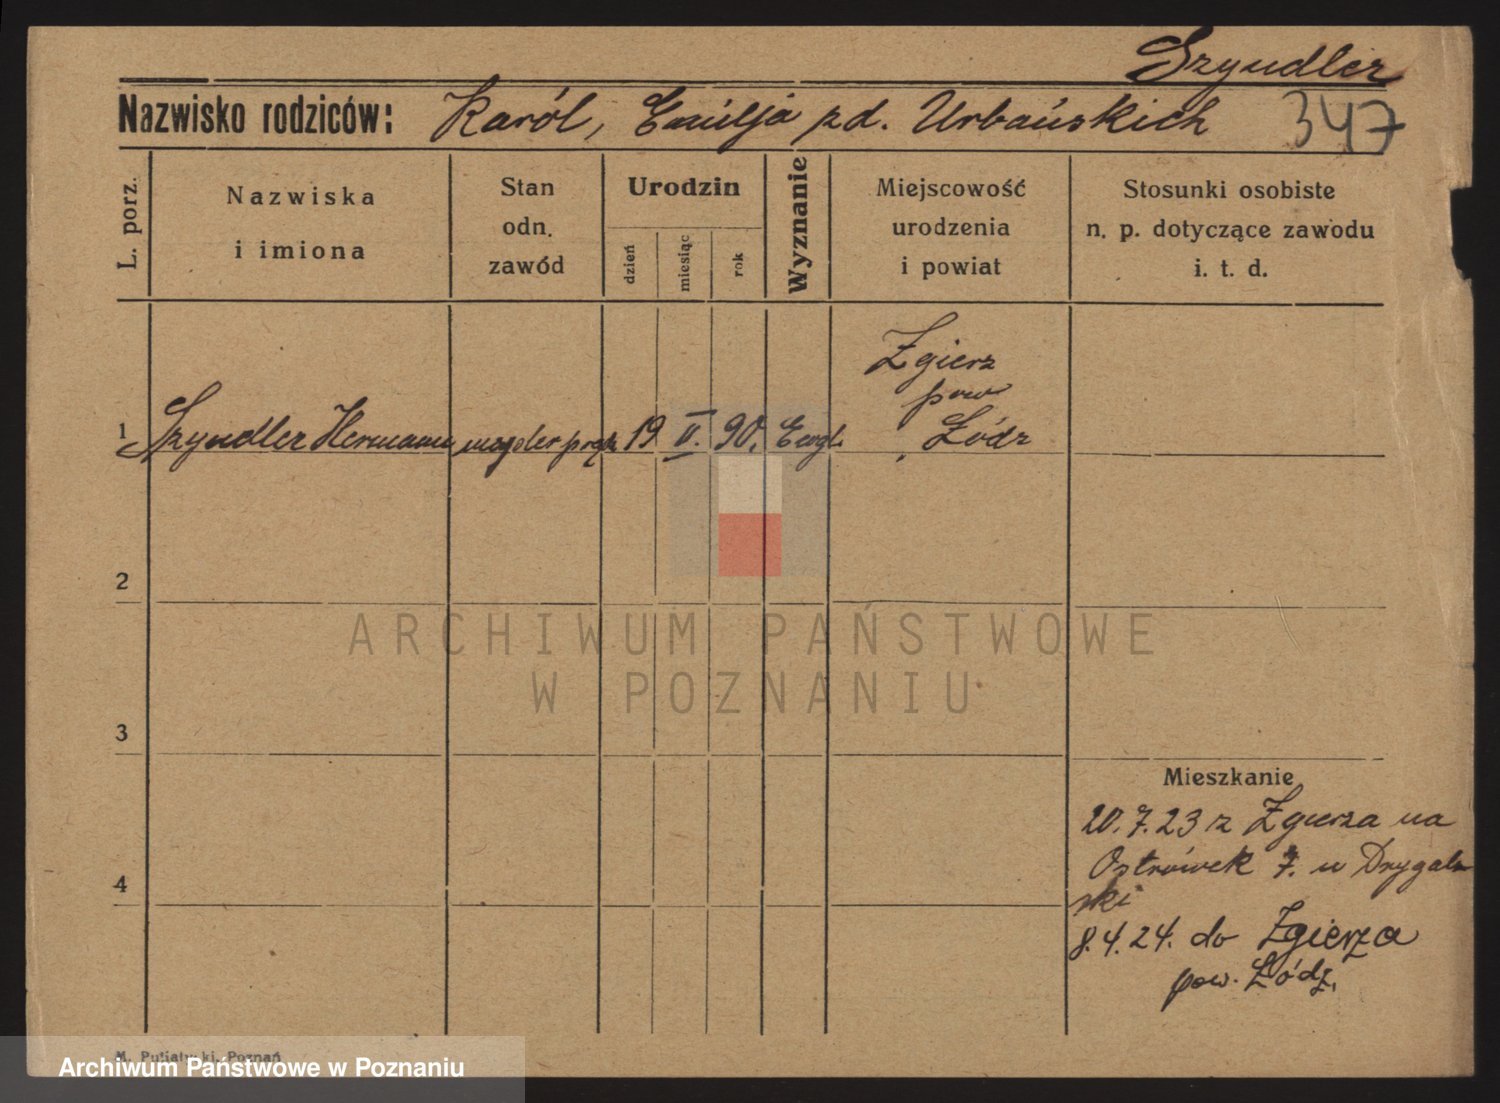 Szyndler
Nazwisko rodziców: Karól, Emilja zd. Urbańskich 347
L. porz.
Nazwiska
i imiona
Stan
odn.
zawód
Urodzin
dzień
miesiąc
rok
Wyznanie
Miejscowość
urodzenia
i powiat
Stosunki osobiste
n. p. dotyczące zawodu
i. t. d.
Zgierz
pow
1 Szyndler Hermann 19 II. 90. Ewgl. Łódz
2
ARCHIWUM PAŃSTWOWE
W POZNANIU
3
Mieszkanie
20.7.23 z Zgierza na
4 Ostrówek 7. u Drygal
ski
8.4.24. do Zgierza
pow. Łódz.
M. Putiatycki, Poznań
Archiwum Państwowe w Poznaniu